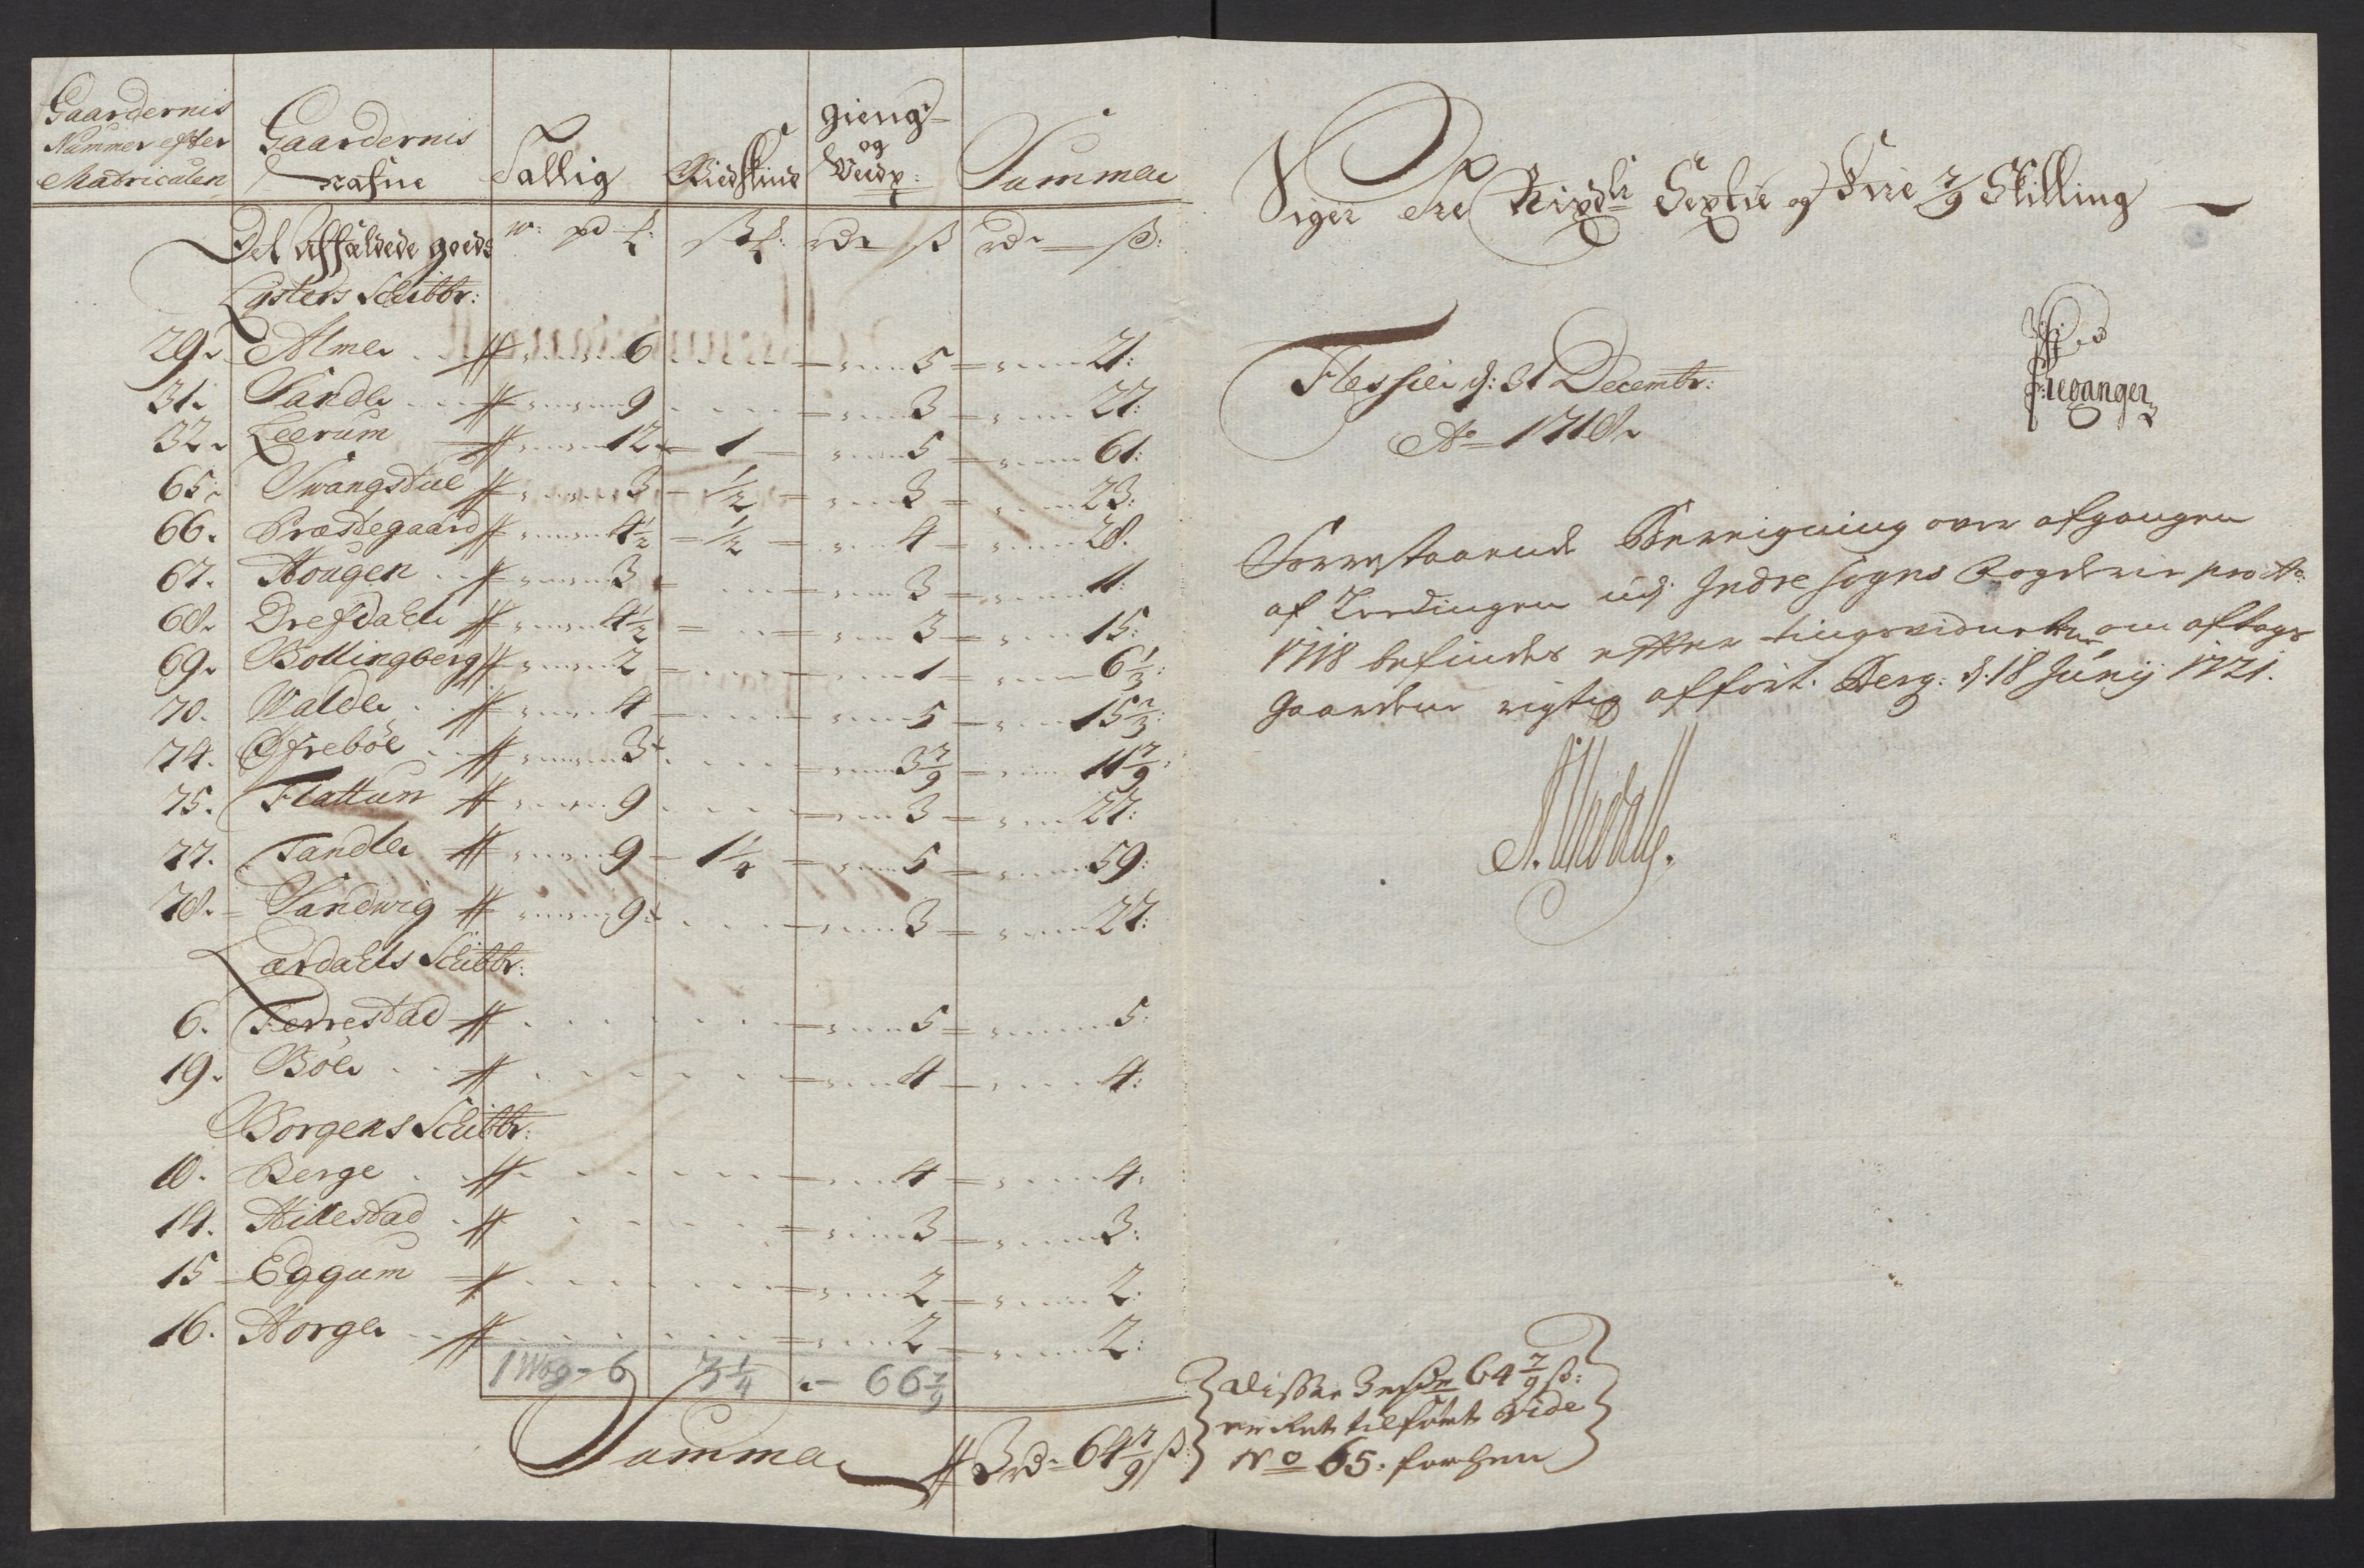 Gaardernis
Nummer efter
Matriculen
Gaardernis
nafne
Tallig
Giedskind
Gieng-
og
Veidp:
Summa
Det Affældede goeds
w: pd ℔: ß℔: rdr ß rdr ß:
Lysters Schibbr:
29. Alme 6 5 21:
31. Sande 9 3 27:
32. Leerum 12 1 5 61:
65. Svangstue 3 1/2 3 23:
66. Præstegaard 4 1/2 1/2 4 28.
67. Hougen 3 3 11:
68. Drefdahl 4 1/2 3 15:
69. Bollingberg 2 1 6 1/3:
70. Walde 4 5 15 2/3:
74. Ofreböe 3 3 7/9 11 7/9:
75. Flattun 9 3 27:
77. Tandle 9 1 1/4 5 59:
78. Sandwig 9 3 27:
Lærdahls Schibbr:
6. Ferrestad 5 5:
19. Böe 4 4:
Borgens Schibbr:
10. Berge 4 4:
14. Hillestad 3 3:
15 Eggum 2 2:
16. Horge 2 2:
1 Wog - 6 3 1/4 - 66 7/9
Summa 3 rd. 64 7/9 ß:
Siger Tre Rixdlr Sextie og Fire 7/9 Skilling
d: 31 Decembr:
Ao 1718.
Forrestaaende Bereigning over afgangen
af Leedingen udj Indre Sogns Fogderie pro Ao:
1718 befindes efter tingsvidnerne om aftags
gaardene rigtig affört. Berg: d: 18 Junij 1721.
Disse 3 rdr 64 7/9 ß:
er Ret tilfört Vide
No 65. forhen